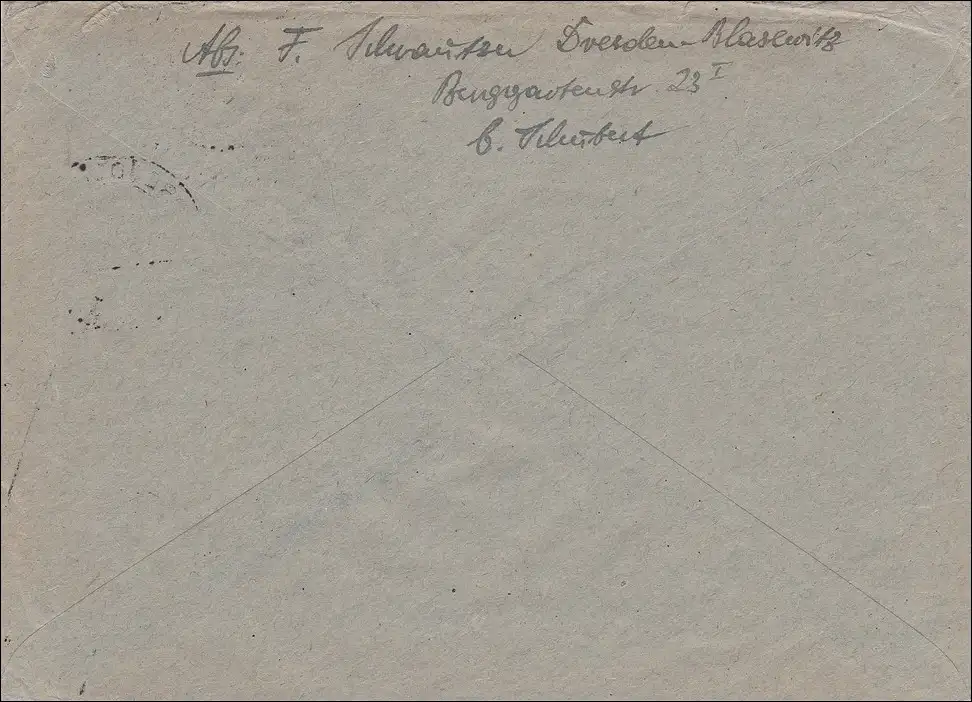 Abs. F. Schrautzer Dresden-Blasewitz
Berggartenstr 23 I
b. Schubert